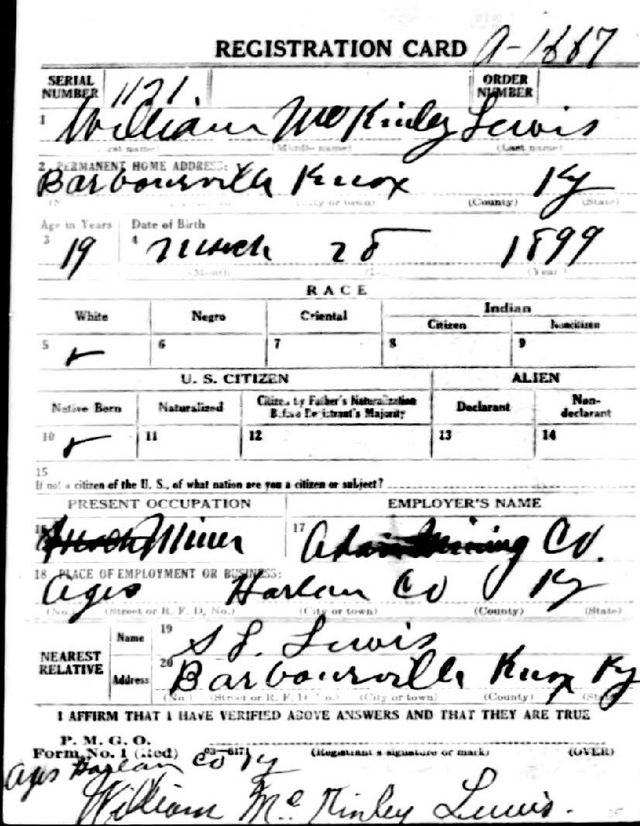 REGISTRATION CARD A-1667
SERIAL NUMBER 1121 ORDER NUMBER
1 William McKinley Lewis
(Middle name) (Last name)
2. PERMANENT HOME ADDRESS:
Barbourville Knox Ky
(City or town) (County) (State)
Age in Years Date of Birth
3 19 4 March 28 1899
(Month) (Year)
RACE
White Negro Oriental Indian
Citizen Noncitizen
5 ✓ 6 7 8 9
U. S. CITIZEN ALIEN
Native Born Naturalized Citizen by Father's Naturalization Before Registrant's Majority Declarant Non-declarant
10 ✓ 11 12 13 14
15
If not a citizen of the U. S., of what nation are you a citizen or subject?
PRESENT OCCUPATION EMPLOYER'S NAME
16 Miner 17 Mining Co.
18 PLACE OF EMPLOYMENT OR BUSINESS:
Ages Harlan Co Ky
(No.) (Street or R. F. D. No.) (City or town) (County) (State)
NEAREST RELATIVE Name 19 S L Lewis
Address 20 Barbourville Knox Ky
(No.) (Street or R. F. D. No.) (City or town) (County) (State)
I AFFIRM THAT I HAVE VERIFIED ABOVE ANSWERS AND THAT THEY ARE TRUE
P. M. G. O.
Form No. 1 (Red) 03-6171 (Registrant's signature or mark) (OVER)
Ages Harlan Co Ky
William McKinley Lewis.